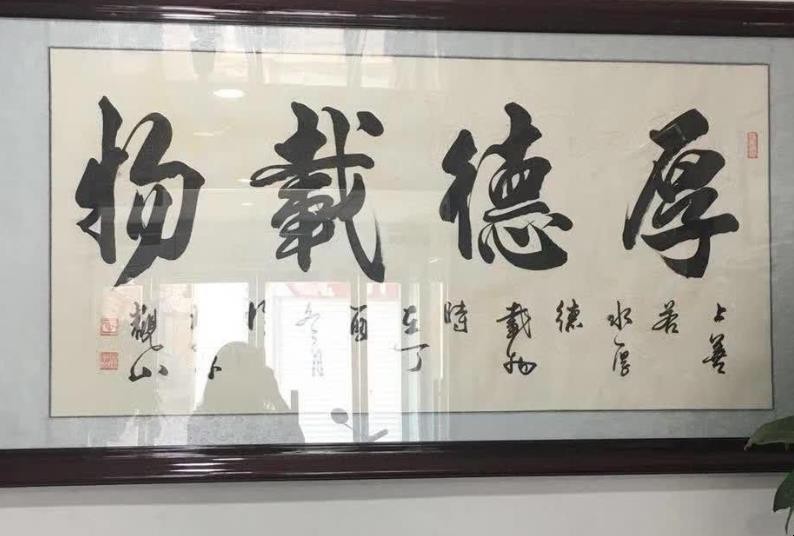 厚德载物
上善若水厚德载物時在丁酉冬月
觀山